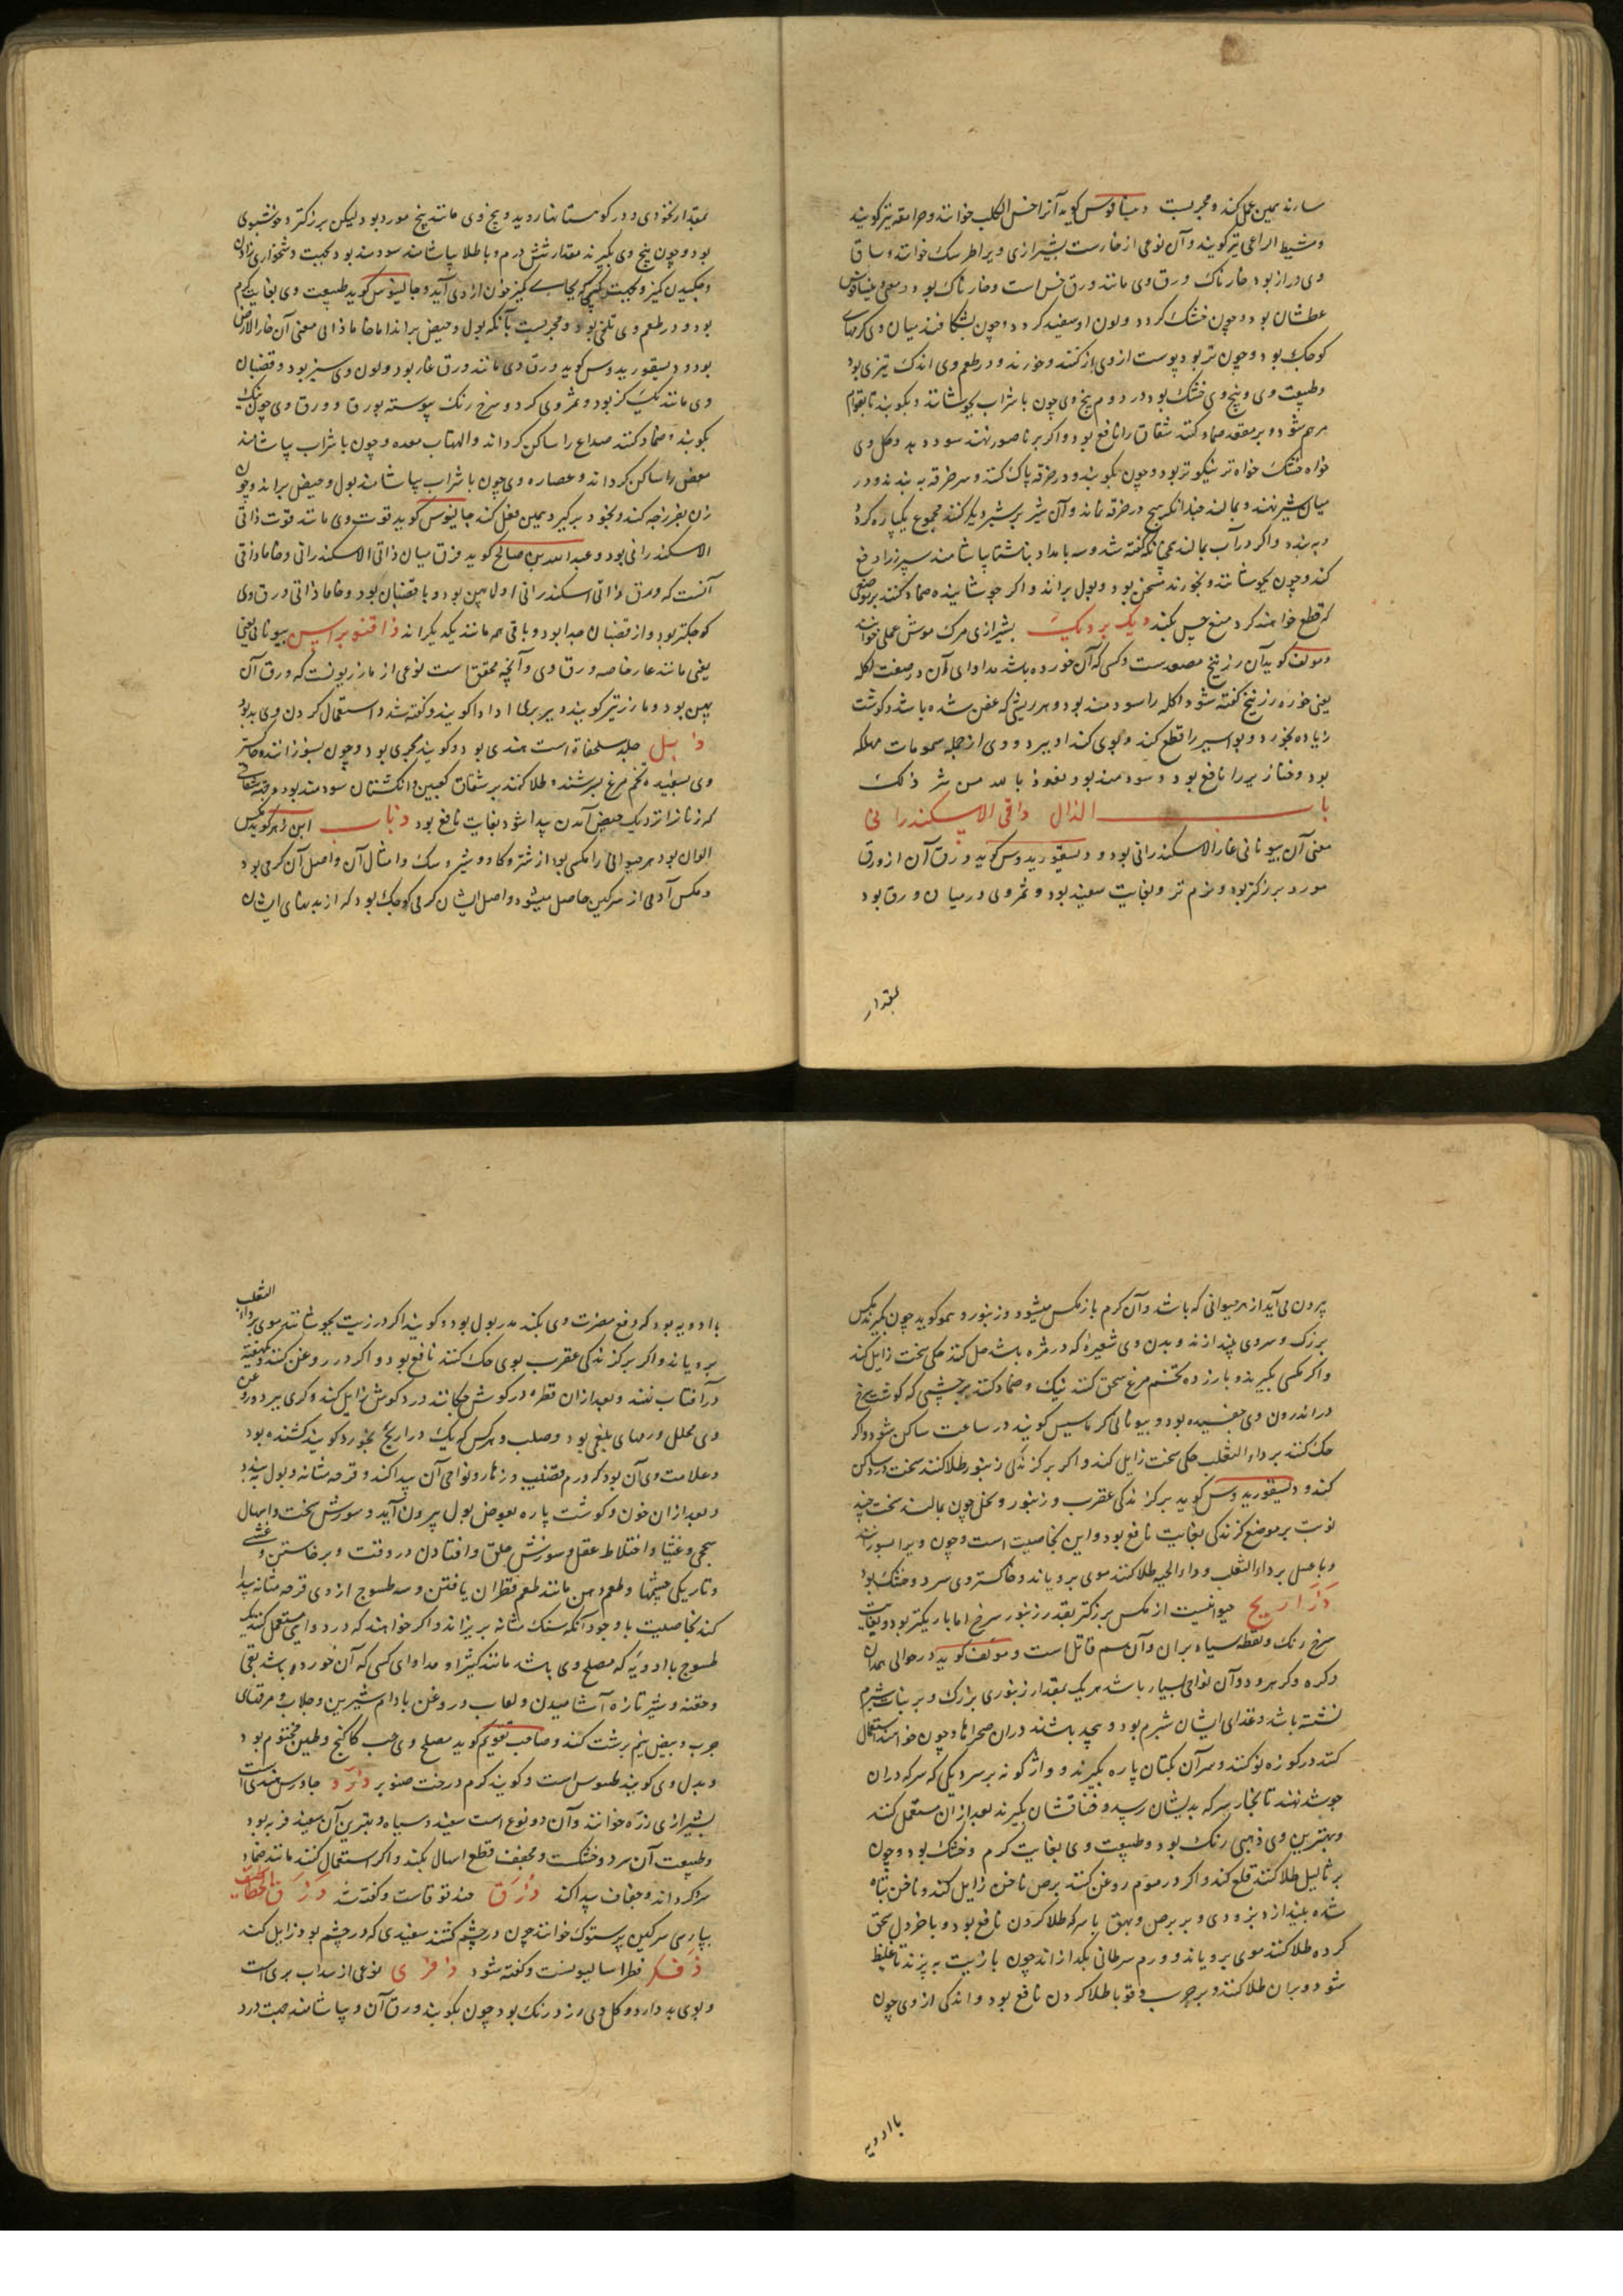 سازند همین عمل کند و مجربست دیسافوس کوید آنرا خس الکلب خوانند و مرامقه نیز کویند
و مشیط الراعی نیز کویند و آن نوعی از خارست بشیرازی ویرا طرسک خوانند و ساق
وی دراز بود خارناک ورق وی مانند ورق خس است و خارناک بود و معنی دیسافوس
عطشان بود و چون خشک کردد ولون او سفید کردد و چون بشکافند میان وی کرمهای
کوچک بود و چون تر بود پوست از وی باز کنند و خورند و در طعم وی اندک تیزی بود
و طبیعت وی و بیخ وی خشک بود در دوم بیخ وی چون با شراب بجوشانند و بکوبند تا بقوام
مرهم شود و بر مقعد ضماد کنند شقاق را نافع بود و اکر بر ناصور نهند سود دهد و کل وی
خواه خشک خواه تر نیکوتر بود و چون بکوبند و در خرقه پاک کنند و سر خرقه به بندند و در
میان شیر نهند و بمالند چندانکه هیچ در خرقه نماند و آن شیر بر شیر دیکر کنند مجموع یکپاره کردد
و به بندد و اکر در آب بمالند همچنانکه کفته شد و سه بامداد بناشتا بیاشامند سپرز را دفع
کند و چون بجوشانند و بخورند مسخن بود و بول براند و اکر جوشانیده ضماد کنند بر موضعی
که قطع خواهند کرد منع حس بکند دیک بر دیک بشیرازی مرک موش عملی خوانند
و مولف کوید آن زرنیخ مصعدست و کسی که آن خورده باشد مداوای آن در صفت کله
یعنی خوره زرنیخ کفته شود اکله را سودمند بود و هر ریشی که عفن شده باشد و کوشت
زیاده بخورد و بواسیر را قطع کند و بوی کند او ببرد و وی از جمله سمومات مهلکه
بود و خنازیر را نافع بود و سودمند بود نعوذ بالله من شر ذلک
باب الذال ذاقی الاسکندرانی
معنی آن بیونانی غار الاسکندرانی بود و دیسقوریدوس کوید ورق آن از ورق
مورد بزرکتر بود و نرم تر و بغایت سفید بود و ثمر وی در میان ورق بود
بمقدار
بمقدار نخودی و در کوهستانها روید و بیخ وی مانند بیخ مورد بود و لیکن بزرکتر و خوشبوی
بود و چون بیخ وی بکیرند مقدار شش درم و با طلا بیاشامند سودمند بود بجهت دشخواری زادن
و چکیدن کمیز و بجهت کسی که بجای کمیز خون از وی آید و جالینوس کوید طبیعت وی بغایت کرم
بود و در طعم وی تلخی بود و مجربست بآنکه بول و حیض براند اما خاماذاقی معنی آن غار الارض
بود و دیسقوریدوس کوید ورق وی مانند ورق غار بود ولون وی سبز بود و قضبان
وی مانند یک کز بود و ثمر وی کرد و سرخ رنک پیوسته بورق و ورق وی چون نیک
بکوبند و ضماد کنند صداع را ساکن کرداند و التهاب معده و چون با شراب بیاشامند
مغص را ساکن کرداند و عصاره وی چون با شراب بیاشامند بول و حیض براند و چون
زن بفرزجه کند و بخود برکیرد همین فعل کند جالینوس کوید قوت وی مانند قوت ذاقی
الاسکندرانی بود و عبدالله بن صالح کوید فرق میان ذاقی الاسکندرانی و خاماذاقی
آنست که ورق ذاقی اسکندرانی اولا پهن بود و با قضبان بود و خاماذاقی ورق وی
کوچکتر بود و از قضبان جدا بود و باقی همه مانند یکدیکراند ذاقنوبراسیس بیونانی یعنی
یعنی مانند غار خاصه ورق وی و آنچه محقق است نوعی از مازریونست که ورق آن
پهن بود و مازر نیز کویند و ببربری اداد کویند و کفته شد و استعمال کردن وی بد بود
ذبل جلد سلحفاة است هندی بود و کویند بحری بود و چون بسوزانند و خاکستر
وی بسفیده تخم مرغ بسرشند و طلا کنند بر شقاق کعبین و انکشتان سودمند بود و جهت شقاقی
که زنانرا نزدیک حیض آمدن پیدا شود بغایت نافع بود ذباب ابن زهر کوید مکس
الوان بود هر حیوانی را مکسی بود از شتر و کاو و شیر و سک و امثال آن و اصل آن کرمی بود
و مکس آدمی از سرکین حاصل میشود و اصل ایشان کرمی کوچک بود که از بدنهای ایشان
بیرون می آید از هر حیوانی که باشد و آن کرم باز مکس میشود و زنبور و همو کوید چون بکیرند مکس
بزرک و سر وی بیندازند و بدن وی شعیره که در مژه باشد حل کنند حکی سخت زایل کند
و اکر مکسی بکیرند و با زرده تخم مرغ سحق کنند نیک و ضماد کنند بر چشمی که کوشت سرخ
در اندرون وی چفسیده بود و بیونانی کرماسیس کویند در ساعت ساکن شود و اکر
حک کنند بر داء الثعلب حکی سخت زایل کند و اکر بر کزندکی زنبور طلا کنند سخت درد ساکن
کند و دیسقوریدوس کوید بر کزندکی عقرب و زنبور و نحل چون بمالند سخت چند
نوبت بر موضع کزندکی بغایت نافع بود و این بخاصیت است و چون ویرا بسوزانند
و با عسل بر داء الثعلب و داء الحیه طلا کنند موی برویاند و خاکستر وی سرد و خشک بود
ذراریح حیوانیست از مکس بزرکتر بقدر زنبور سرخ اما باریکتر بود و بغایت
سرخ رنک و نقطه سیاه بر ان و آن سم قاتل است و مولف کوید در حوالی همدان
و کره و کرهرود و آن نواحی بسیار باشد هر یک بمقدار زنبوری بزرک و بر نبات شبرم
نشسته باشد و غذای ایشان شبرم بود و بیحد باشند در ان صحراها و چون خواهند استعمال
کنند در کوزه نو کنند و سر آن بکتان پاره بکیرند و واژکونه بر سر دیکی که سرکه در ان
جوشد نهند تا بخار سرکه بدیشان رسد و خناقشان بکیرند بعد از ان مستعمل کنند
و بهترین وی ذهبی رنک بود و طبیعت وی بغایت کرم و خشک بود و چون
بر ثآلیل طلا کنند قلع کند و اکر در موم روغن کنند برص ناخن زایل کند و ناخن تباه
شده بیندازد بزودی و بر برص و بهق با سرکه طلا کردن نافع بود و با خردل سحق
کرده طلا کنند موی برویاند و ورم سرطانی بکدازاند چون با زیت به پزند تا غلیظ
شود و بر ان طلا کنند و بر جرب و قوبا طلا کردن نافع بود و اندکی از وی چون
با ادویه
با ادویه بود که دفع مضرت وی بکند مدر بول بود و کویند اکر در زیت بجوشانند موی بر داء الثعلب
برویاند و اکر بر کزندکی عقرب بوی حک کنند نافع بود و اکر در روغن کنند و یکهفته
در آفتاب نهند و بعد از ان قطره در کوش چکانند درد کوش زایل کند و کری ببرد و روغن
وی محلل ورمهای بلغمی بود و صلب و هر کس که یک ذراریح بخورد کویند کشنده بود
و علامت وی آن بود که ورم قضیب و زهار و نواحی آن پیدا کند و قرحه مثانه و بول ببندد
و بعد از ان خون و کوشت پاره بعوض بول بیرون آید و سوزش سخت و اسهال
سحجی و غثیان و اختلاط عقل و سوزش حلق و افتادن در وقت و برخاستن و غشی
و تاریکی چشمها و طعم دهن مانند طعم قطران یافتن و سه طسوج از وی قرحه مثانه پیدا
کند بخاصیت با وجود آنکه سنک مثانه بریزاند و اکر خواهند که در دوایی مستعمل کنند یک
طسوج با ادویه که مصلح وی باشد مانند کثیرا و مداوای کسی که آن خورده باشد بقی
و حقنه و شیر تازه آشامیدن و لعاب و روغن بادام شیرین و جلاب و مرقهای
چرب و بیض نیم برشت کنند و صاحب تقویم کوید مصلح وی حب کاکنج و طین مختوم بود
و بدل وی کویند طسوس است و کویند کرم درخت صنوبر ذره جاورس هندی است
بشیرازی زره خوانند و آن دو نوع است سفید و سیاه و بهترین آن سفید فربه بود
و طبیعت آن سرد و خشکست و مجفف قطع اسهال بکند و اکر استعمال کنند مانند ضماد
سرد کرداند و جفاف پیدا کند ذرق حندقوقاست و کفته شد ذرق الخطاطیف
بپارسی سرکین پرستوک خوانند چون در چشم کشند سفیدی که در چشم بود زایل کند
ذفک فطراسالیونست و کفته شود ذفری نوعی از سداب بری است
و بوی بد دارد و کل وی زرد رنک بود چون بکوبند ورق آن و بیاشامند جهت درد